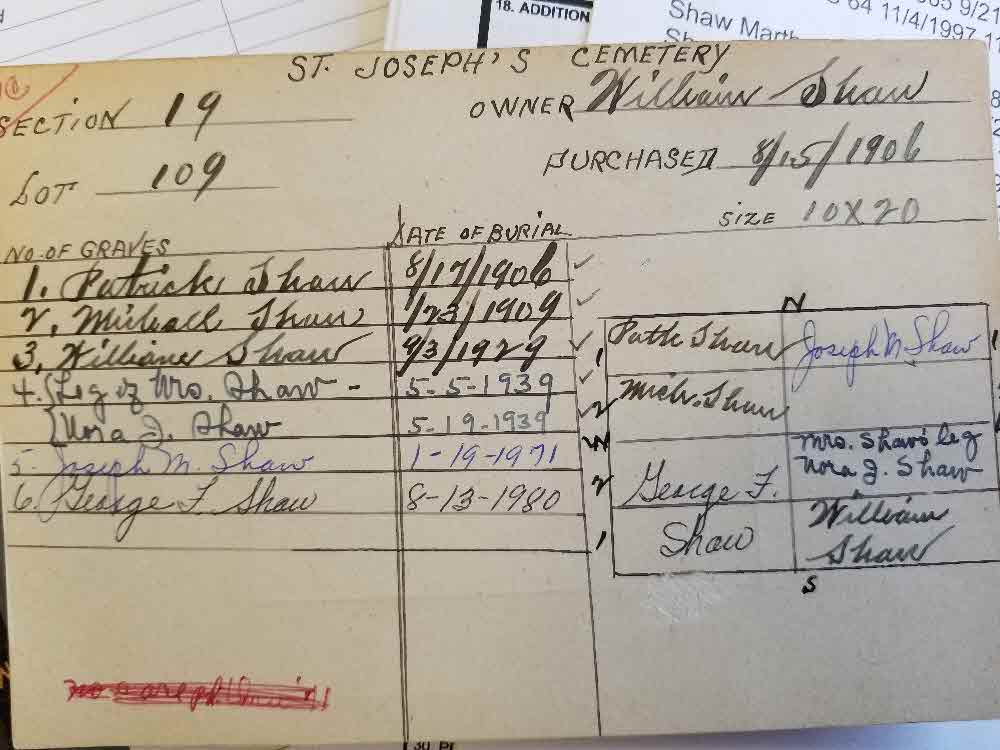 18. ADDITION
Shaw Marth
64 11/4/1997
9/21
ST. JOSEPH'S CEMETERY
SECTION 19
OWNER William Shaw
LOT 109
PURCHASED 8/15/1906
SIZE 10X20
NO. OF GRAVES DATE OF BURIAL
1. Patrick Shaw 8/17/1906 ✓
2. Michael Shaw 1/23/1909 ✓
3. William Shaw 9/3/1929 ✓
4. {Leg of Mrs. Shaw - 5-5-1939 ✓
{Nora J. Shaw 5-19-1939
5- Joseph M. Shaw 1-19-1971
6. George F. Shaw 8-13-1980
N
1 Patk Shaw Joseph M. Shaw 1
2 Mich. Shaw
W
Mrs. Shaw's leg
Nora J. Shaw
2 George F.
Shaw
William
Shaw
1
S